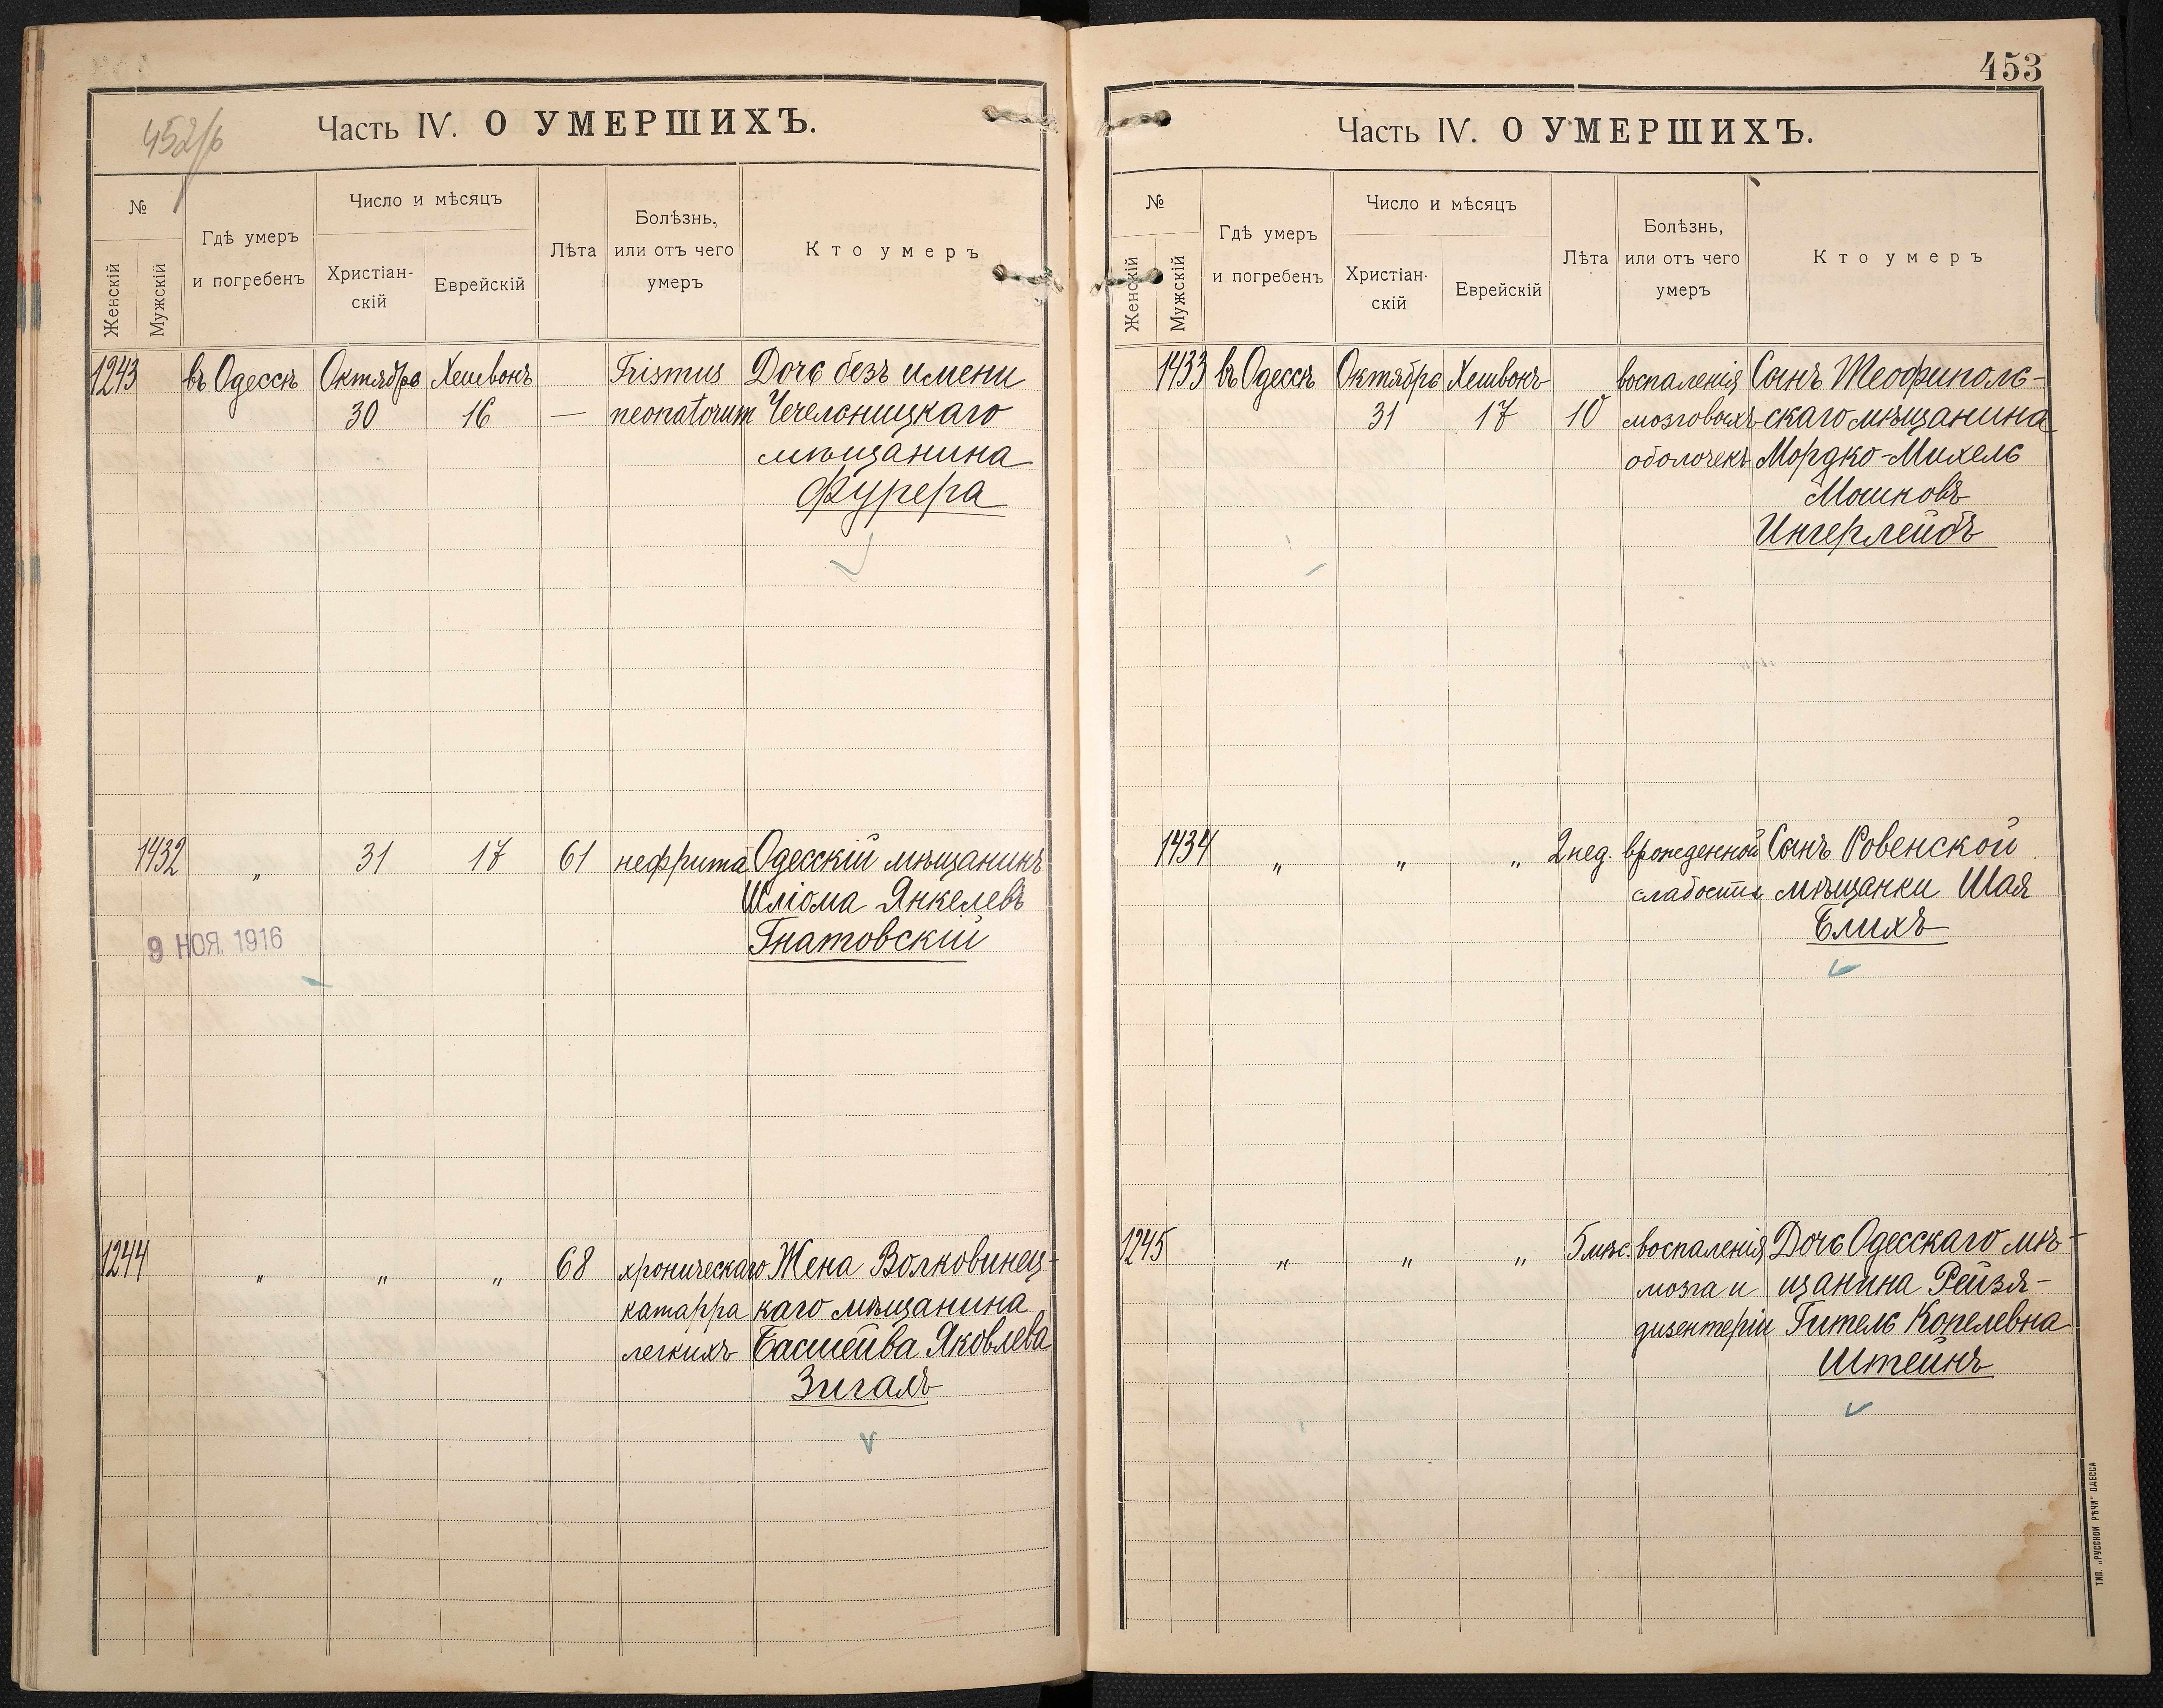 452/б
Часть IV. О УМЕРШИХЪ.
№
Женскій
Мужскій
Гдѣ умеръ
и погребенъ
Число и мѣсяцъ
Христіан-
скій
Еврейскій
Лѣта
Болѣзнь,
или отъ чего
умеръ
Кто умеръ
1243 въ Одессѣ Октября Хешвонъ Trismus Дочь безъ имени
30 16 — neonatorum Чечельницкаго
мѣщанина
Фурера
1432 „ 31 17 61 нефрита Одесскій мѣщанинъ
Шліома Янкелевъ
Гнатовскій
9 НОЯ. 1916
1244 „ „ „ 68 хроническаго Жена Волковинец-
катарра каго мѣщанина
легкихъ Басшейва Яковлева
Зигалъ
453
Часть IV. О УМЕРШИХЪ.
№
Женскій
Мужскій
Гдѣ умеръ
и погребенъ
Число и мѣсяцъ
Христіан-
скій
Еврейскій
Лѣта
Болѣзнь,
или отъ чего
умеръ
Кто умеръ
1433 въ Одессѣ Октября Хешвонъ воспаленія Сынъ Теофиполь-
31 17 10 мозговыхъ скаго мѣщанина
оболочекъ Мордко-Михель
Мошковъ
Ингерлейбъ
1434 „ „ „ 2 нед. врожденной Сынъ Ровенской
слабости мѣщанки Шая
Блихъ
1245 „ „ „ 5 мѣс. воспаленія Дочь Одесскаго мѣ-
мозга и щанина Рейзя-
дизентеріи Гитель Копелевна
Штейнъ
ТИП. „РУССКОЙ РѢЧИ" ОДЕССА